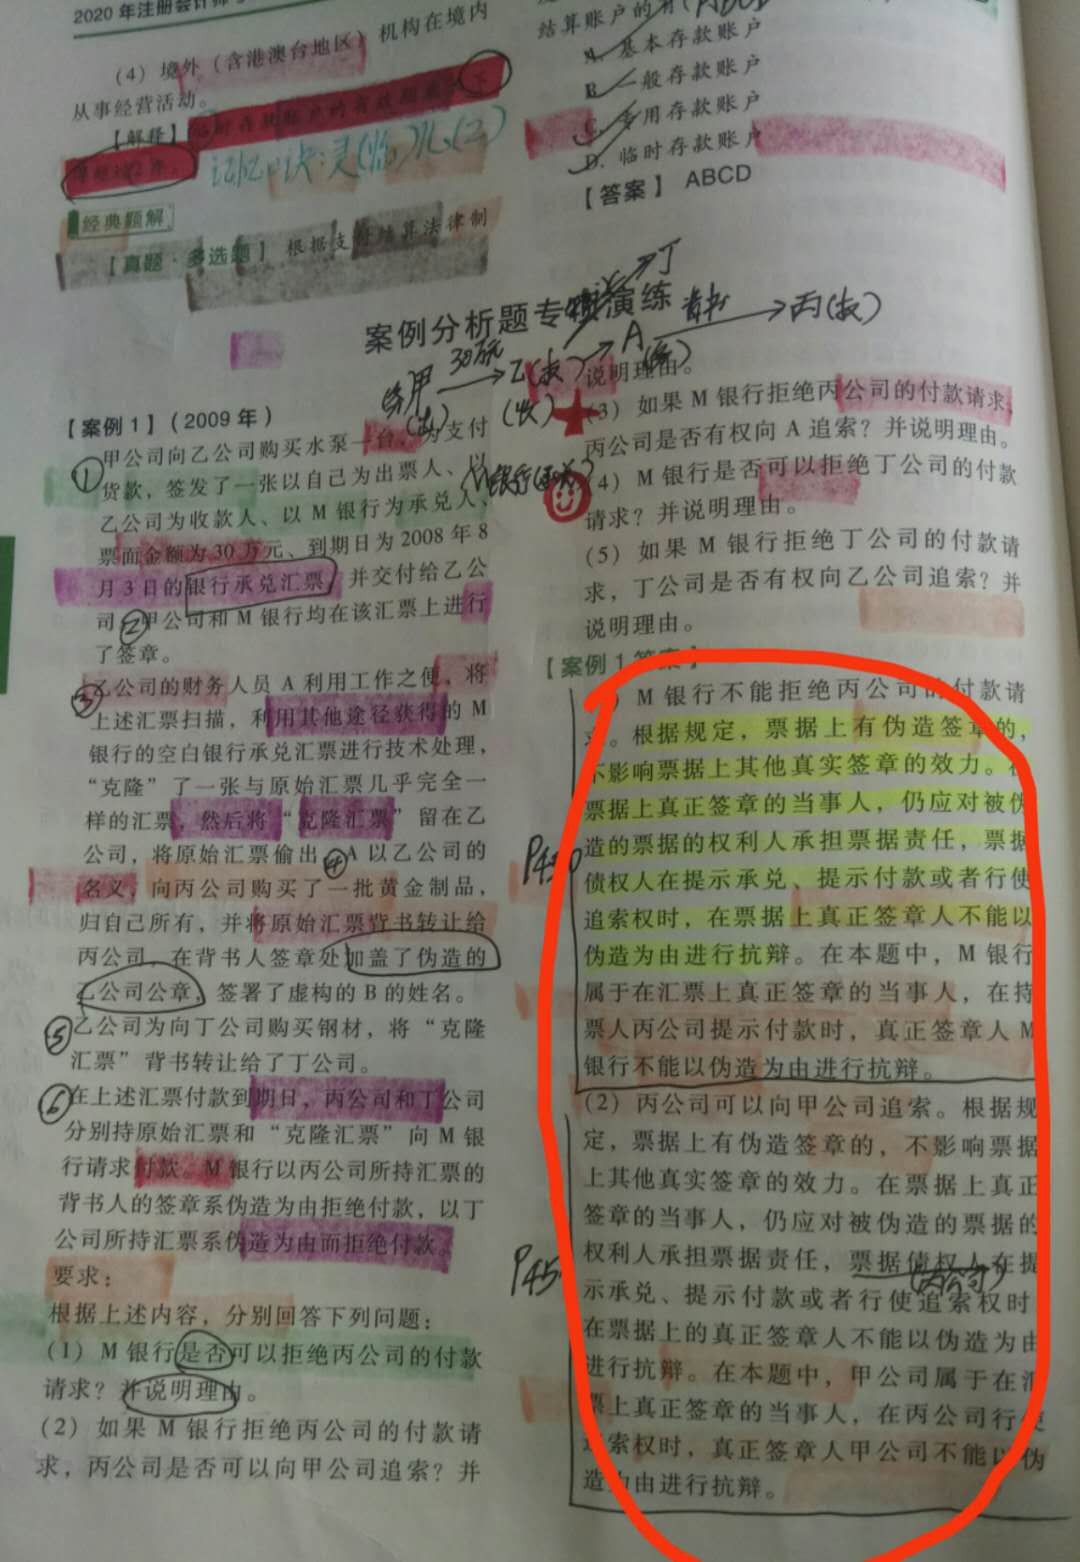 2020年注册会计师
(4)境外(含港澳台地区)机构在境内
从事经营活动。
【解释】
记忆口诀:灵(临)儿(2)
经典题解
【真题·多选题】根据支付结算法律制
结算账户的有(ABCD
A.基本存款账户
B.一般存款账户
C.专用存款账户
D.临时存款账户
【答案】ABCD
案例分析题专项演练
丁
A 背书 丙(被)
甲 30万元 乙(被)
(出) (收)
【案例1】(2009年)
① 甲公司向乙公司购买水泵一台,为支付
货款,签发了一张以自己为出票人、以
乙公司为收款人、以M银行为承兑人、
票面金额为30万元、到期日为2008年8
月3日的银行承兑汇票,并交付给乙公
司。②甲公司和M银行均在该汇票上进行
了签章。
③ 乙公司的财务人员A利用工作之便,将
上述汇票扫描,利用其他途径获得的M
银行的空白银行承兑汇票进行技术处理,
“克隆”了一张与原始汇票几乎完全一
样的汇票,然后将“克隆汇票”留在乙
公司,将原始汇票偷出。④A以乙公司的
名义,向丙公司购买了一批黄金制品,
归自己所有,并将原始汇票背书转让给
丙公司,在背书人签章处加盖了伪造的
乙公司公章,签署了虚构的B的姓名。
⑤ 乙公司为向丁公司购买钢材,将“克隆
汇票”背书转让给了丁公司。
⑥ 在上述汇票付款到期日,丙公司和丁公司
分别持原始汇票和“克隆汇票”向M银
行请求付款。M银行以丙公司所持汇票的
背书人的签章系伪造为由拒绝付款,以丁
公司所持汇票系伪造为由而拒绝付款。
要求:
根据上述内容,分别回答下列问题:
(1)M银行是否可以拒绝丙公司的付款
请求?并说明理由。
(2)如果M银行拒绝丙公司的付款请
求,丙公司是否可以向甲公司追索?并
说明理由。
(3)如果M银行拒绝丙公司的付款请求,
丙公司是否有权向A追索?并说明理由。
(4)M银行是否可以拒绝丁公司的付款
请求?并说明理由。
(5)如果M银行拒绝丁公司的付款请
求,丁公司是否有权向乙公司追索?并
说明理由。
【案例1答案】
)M银行不能拒绝丙公司的付款请
求。根据规定,票据上有伪造签章的,
不影响票据上其他真实签章的效力。在
票据上真正签章的当事人,仍应对被伪
造的票据的权利人承担票据责任,票据
P450
债权人在提示承兑、提示付款或者行使
追索权时,在票据上真正签章人不能以
伪造为由进行抗辩。在本题中,M银行
属于在汇票上真正签章的当事人,在持
票人丙公司提示付款时,真正签章人M
银行不能以伪造为由进行抗辩。
(2)丙公司可以向甲公司追索。根据规
定,票据上有伪造签章的,不影响票据
上其他真实签章的效力。在票据上真正
签章的当事人,仍应对被伪造的票据的
权利人承担票据责任,票据债权人在提
(丙公司)
P45
示承兑、提示付款或者行使追索权时,
在票据上的真正签章人不能以伪造为由
进行抗辩。在本题中,甲公司属于在汇
票上真正签章的当事人,在丙公司行使
追索权时,真正签章人甲公司不能以伪
造为由进行抗辩。